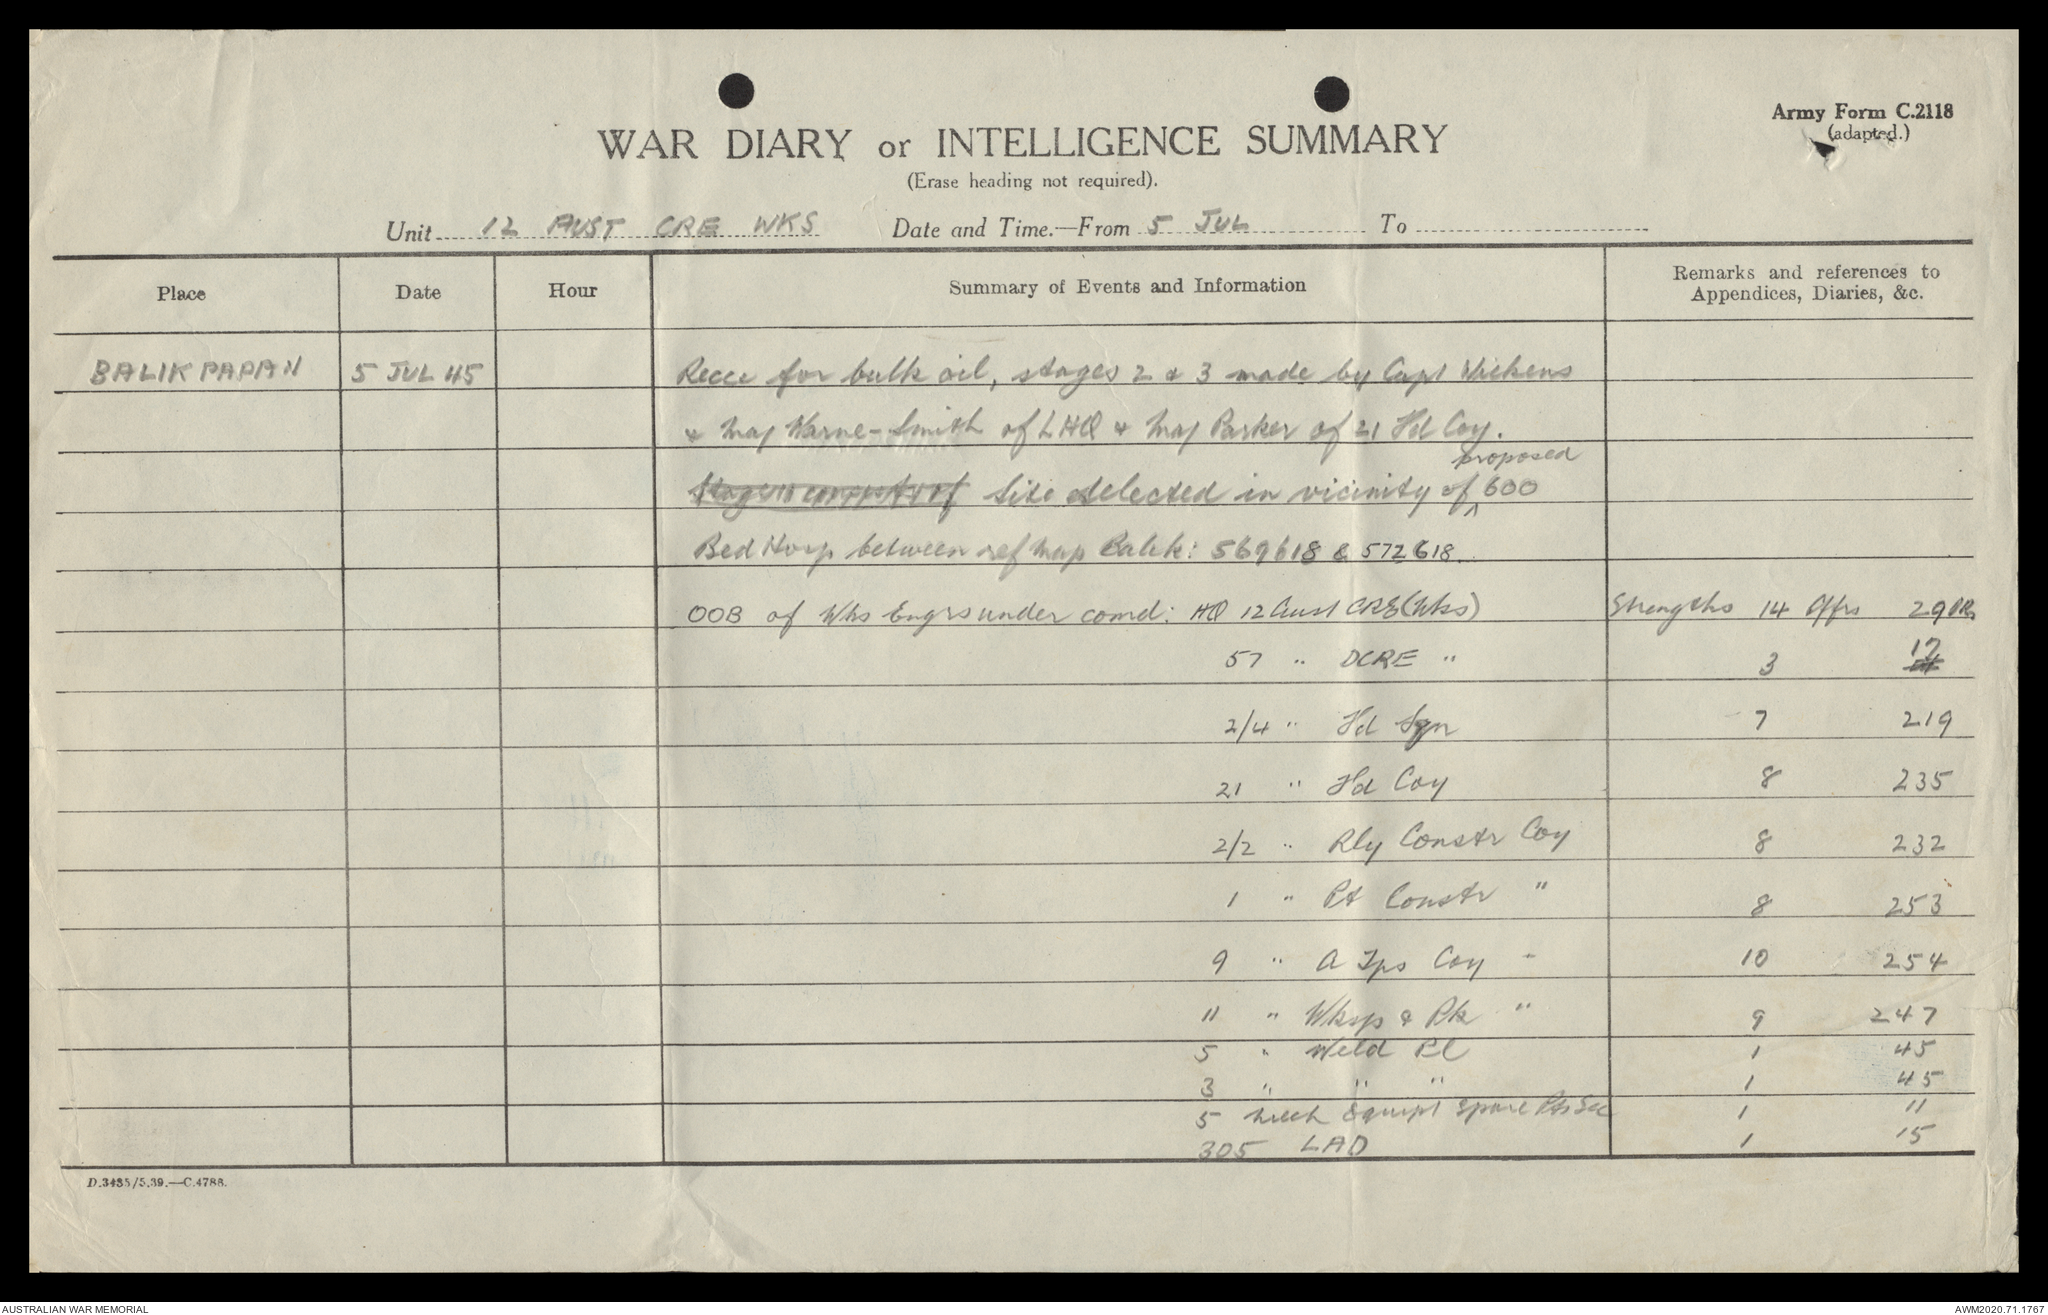 Army Form C.2118
(adapted.)
WAR DIARY or INTELLIGENCE SUMMARY
(Erase heading not required).
Unit 12 AUST CRE WKS Date and Time.—From 5 JUL To
Place Date Hour Summary of Events and Information Remarks and references to
Appendices, Diaries, &c.
BALIKPAPAN 5 JUL 45 Recce for bulk oil, stages 2 & 3 made by Capt Wickens
& Maj Warne-Smith of LHQ & Maj Parker of 21 Fd Coy.
proposed
Site selected in vicinity of ^ 600
Bed Hosp between ref Map Balik: 569618 & 572618.
OOB of Wks Engrs under comd: HQ 12 Aust CRE (Wks) Strengths 14 Offrs 29 ORs
57 " DCRE " 3 17
2/4 " Fd Sqn 7 219
21 " Fd Coy 8 235
2/2 " Rly Constr Coy 8 232
1 " Pt Constr " 8 253
9 " A Tps Coy - 10 254
11 " Wksp & Pk " 9 247
5 " Weld Pl 1 45
3 " " " 1 45
5 Mech Equipt Spare Pts Sec 1 11
305 LAD 1 15
D.3435/5.39.—C.4788.
AUSTRALIAN WAR MEMORIAL AWM2020.71.1767